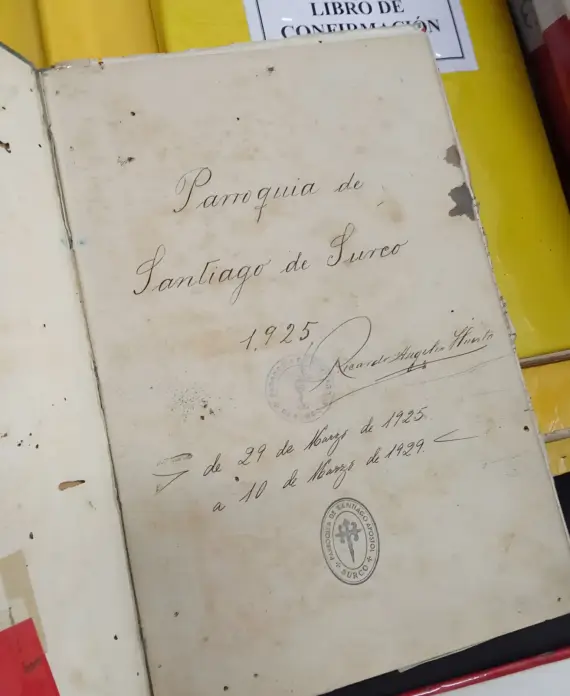 LIBRO DE
CONFIRMACIÓN
Parroquia de
Santiago de Surco
1,925
Ricardo Angeles
de 29 de Marzo de 1925.
a 10 de Marzo de 1929.
PARROQUIA DE SANTIAGO APOSTOL
SURCO